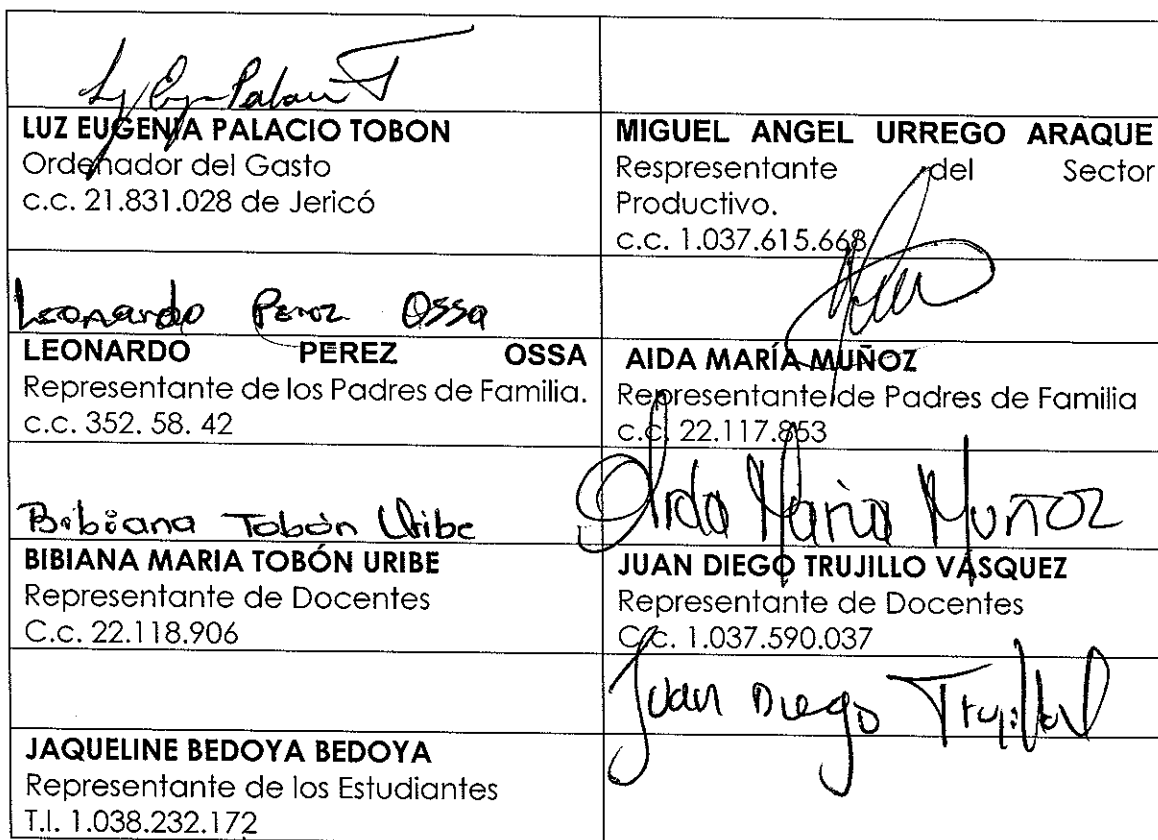 LUZ EUGENIA PALACIO TOBON
Ordenador del Gasto
c.c. 21.831.028 de Jericó
MIGUEL ANGEL URREGO ARAQUE
Respresentante del Sector
Productivo.
c.c. 1.037.615.668
Leonardo Perez Ossa
LEONARDO PEREZ OSSA
Representante de los Padres de Familia.
c.c. 352. 58. 42
AIDA MARÍA MUÑOZ
Representante de Padres de Familia
c.c. 22.117.853
Bibiana Tobón Uribe
BIBIANA MARIA TOBÓN URIBE
Representante de Docentes
C.c. 22.118.906
Aida Maria Muñoz
JUAN DIEGO TRUJILLO VÁSQUEZ
Representante de Docentes
C.c. 1.037.590.037
Juan Diego Trujillo
JAQUELINE BEDOYA BEDOYA
Representante de los Estudiantes
T.I. 1.038.232.172